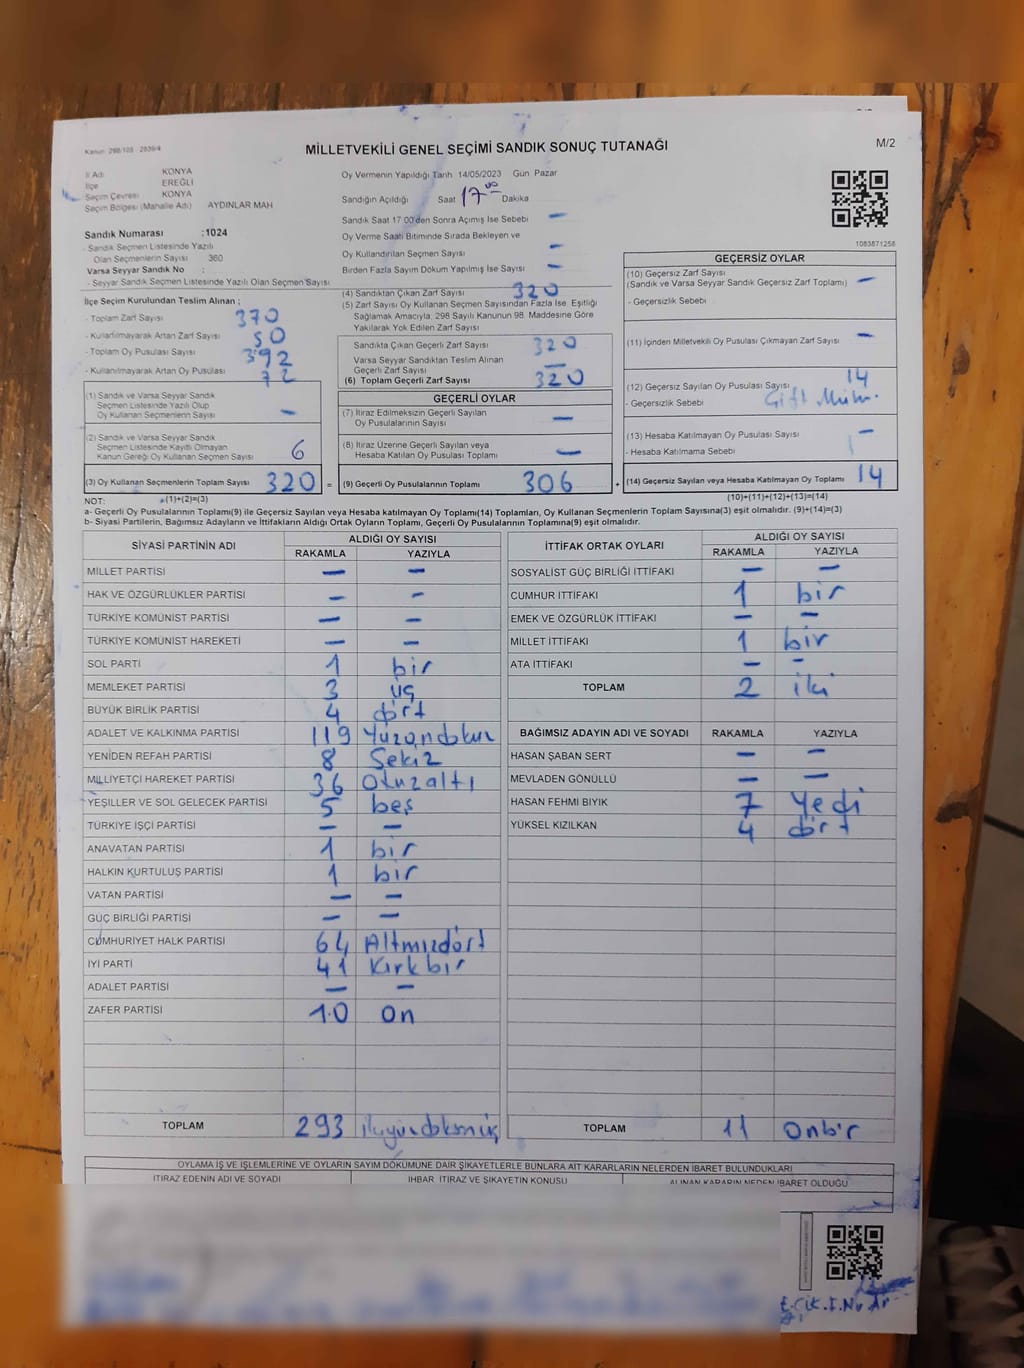 Kanun: 298/105 2839/4
MİLLETVEKİLİ GENEL SEÇİMİ SANDIK SONUÇ TUTANAĞI
M/2
İl Adı KONYA
İlçe EREĞLİ
Seçim Çevresi KONYA
Seçim Bölgesi (Mahalle Adı) AYDINLAR MAH
Sandık Numarası :1024
- Sandık Seçmen Listesinde Yazılı
Olan Seçmenlerin Sayısı 360
Varsa Seyyar Sandık No :
- Seyyar Sandık Seçmen Listesinde Yazılı Olan Seçmen Sayısı
Oy Vermenin Yapıldığı Tarih 14/05/2023 Gün Pazar
Sandığın Açıldığı Saat 17 00 Dakika
Sandık Saat 17.00'den Sonra Açılmış İse Sebebi —
Oy Verme Saati Bitiminde Sırada Bekleyen ve
Oy Kullandırılan Seçmen Sayısı —
Birden Fazla Sayım Döküm Yapılmış İse Sayısı —
1083871258
İlçe Seçim Kurulundan Teslim Alınan ;
- Toplam Zarf Sayısı 370
- Kullanılmayarak Artan Zarf Sayısı 50
- Toplam Oy Pusulası Sayısı 392
- Kullanılmayarak Artan Oy Pusulası 72
(1) Sandık ve Varsa Seyyar Sandık
Seçmen Listesinde Yazılı Olup
Oy Kullanan Seçmenlerin Sayısı —
(2) Sandık ve Varsa Seyyar Sandık
Seçmen Listesinde Kayıtlı Olmayan
Kanun Gereği Oy Kullanan Seçmen Sayısı 6
(3) Oy Kullanan Seçmenlerin Toplam Sayısı 320 =
(4) Sandıktan Çıkan Zarf Sayısı 320
(5) Zarf Sayısı Oy Kullanan Seçmen Sayısından Fazla İse, Eşitliği
Sağlamak Amacıyla, 298 Sayılı Kanunun 98. Maddesine Göre
Yakılarak Yok Edilen Zarf Sayısı
Sandıkta Çıkan Geçerli Zarf Sayısı 320
Varsa Seyyar Sandıktan Teslim Alınan
Geçerli Zarf Sayısı —
(6) Toplam Geçerli Zarf Sayısı 320
GEÇERLİ OYLAR
(7) İtiraz Edilmeksizin Geçerli Sayılan
Oy Pusulalarının Sayısı —
(8) İtiraz Üzerine Geçerli Sayılan veya
Hesaba Katılan Oy Pusulası Toplamı —
(9) Geçerli Oy Pusulalarının Toplamı 306 +
GEÇERSİZ OYLAR
(10) Geçersiz Zarf Sayısı
(Sandık ve Varsa Seyyar Sandık Geçersiz Zarf Toplamı) —
- Geçersizlik Sebebi
(11) İçinden Milletvekili Oy Pusulası Çıkmayan Zarf Sayısı —
(12) Geçersiz Sayılan Oy Pusulası Sayısı 14
- Geçersizlik Sebebi Çift Müh.
(13) Hesaba Katılmayan Oy Pusulası Sayısı —
- Hesaba Katılmama Sebebi
(14) Geçersiz Sayılan veya Hesaba Katılmayan Oy Toplamı 14
NOT: (1)+(2)=(3)
(10)+(11)+(12)+(13)=(14)
a- Geçerli Oy Pusulalarının Toplamı(9) ile Geçersiz Sayılan veya Hesaba Katılmayan Oy Toplamı(14) Toplamları, Oy Kullanan Seçmenlerin Toplam Sayısına(3) eşit olmalıdır. (9)+(14)=(3)
b- Siyasi Partilerin, Bağımsız Adayların ve İttifakların Aldığı Ortak Oyların Toplamı, Geçerli Oy Pusulalarının Toplamına(9) eşit olmalıdır.
SİYASİ PARTİNİN ADI ALDIĞI OY SAYISI
RAKAMLA YAZIYLA
MİLLET PARTİSİ — —
HAK VE ÖZGÜRLÜKLER PARTİSİ — —
TÜRKİYE KOMÜNİST PARTİSİ — —
TÜRKİYE KOMÜNİST HAREKETİ — —
SOL PARTİ 1 bir
MEMLEKET PARTİSİ 3 üç
BÜYÜK BİRLİK PARTİSİ 4 dört
ADALET VE KALKINMA PARTİSİ 119 Yüzondokuz
YENİDEN REFAH PARTİSİ 8 Sekiz
MİLLİYETÇİ HAREKET PARTİSİ 36 Otuzaltı
YEŞİLLER VE SOL GELECEK PARTİSİ 5 beş
TÜRKİYE İŞÇİ PARTİSİ — —
ANAVATAN PARTİSİ 1 bir
HALKIN KURTULUŞ PARTİSİ 1 bir
VATAN PARTİSİ — —
GÜÇ BİRLİĞİ PARTİSİ — —
CUMHURİYET HALK PARTİSİ 64 Altmızdört
İYİ PARTİ 41 Kırkbir
ADALET PARTİSİ — —
ZAFER PARTİSİ 10 on
TOPLAM 293
İTTİFAK ORTAK OYLARI ALDIĞI OY SAYISI
RAKAMLA YAZIYLA
SOSYALİST GÜÇ BİRLİĞİ İTTİFAKI — —
CUMHUR İTTİFAKI 1 bir
EMEK VE ÖZGÜRLÜK İTTİFAKI — —
MİLLET İTTİFAKI 1 bir
ATA İTTİFAKI — —
TOPLAM 2 iki
BAĞIMSIZ ADAYIN ADI VE SOYADI RAKAMLA YAZIYLA
HASAN ŞABAN SERT — —
MEVLADEN GÖNÜLLÜ — —
HASAN FEHMİ BIYIK 7 Yedi
YÜKSEL KIZILKAN 4 dört
TOPLAM 11 Onbir
OYLAMA İŞ VE İŞLEMLERİNE VE OYLARIN SAYIM DÖKÜMÜNE DAİR ŞİKAYETLERLE BUNLARA AİT KARARLARIN NELERDEN İBARET BULUNDUKLARI
İTİRAZ EDENİN ADI VE SOYADI İHBAR, İTİRAZ VE ŞİKAYETİN KONUSU ALINAN KARARIN NEDEN İBARET OLDUĞU